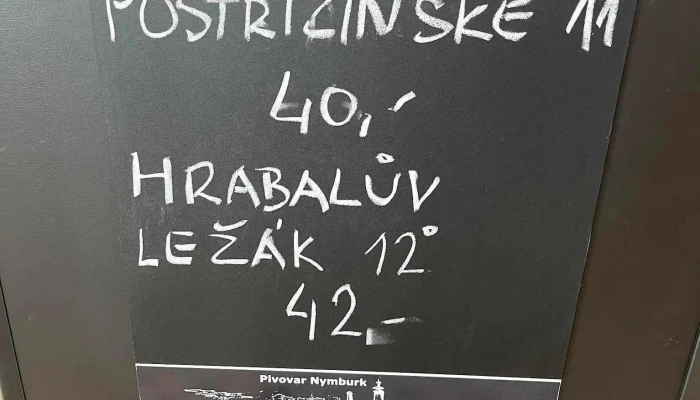 POSTŘIŽINSKÉ 11
40,-
HRABALŮV
LEŽÁK 12°
42,-
Pivovar Nymburk